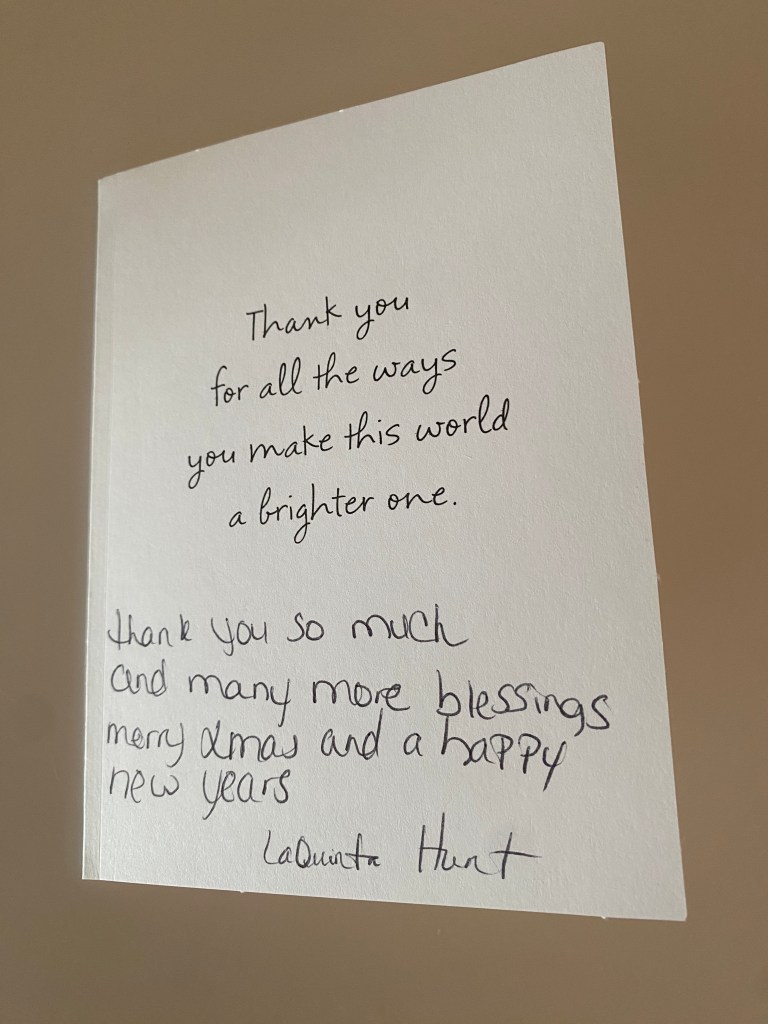 Thank you
for all the ways
you make this world
a brighter one.
thank you so much
and many more blessings
merry xmas and a happy
new years
LaQuinta Hunt